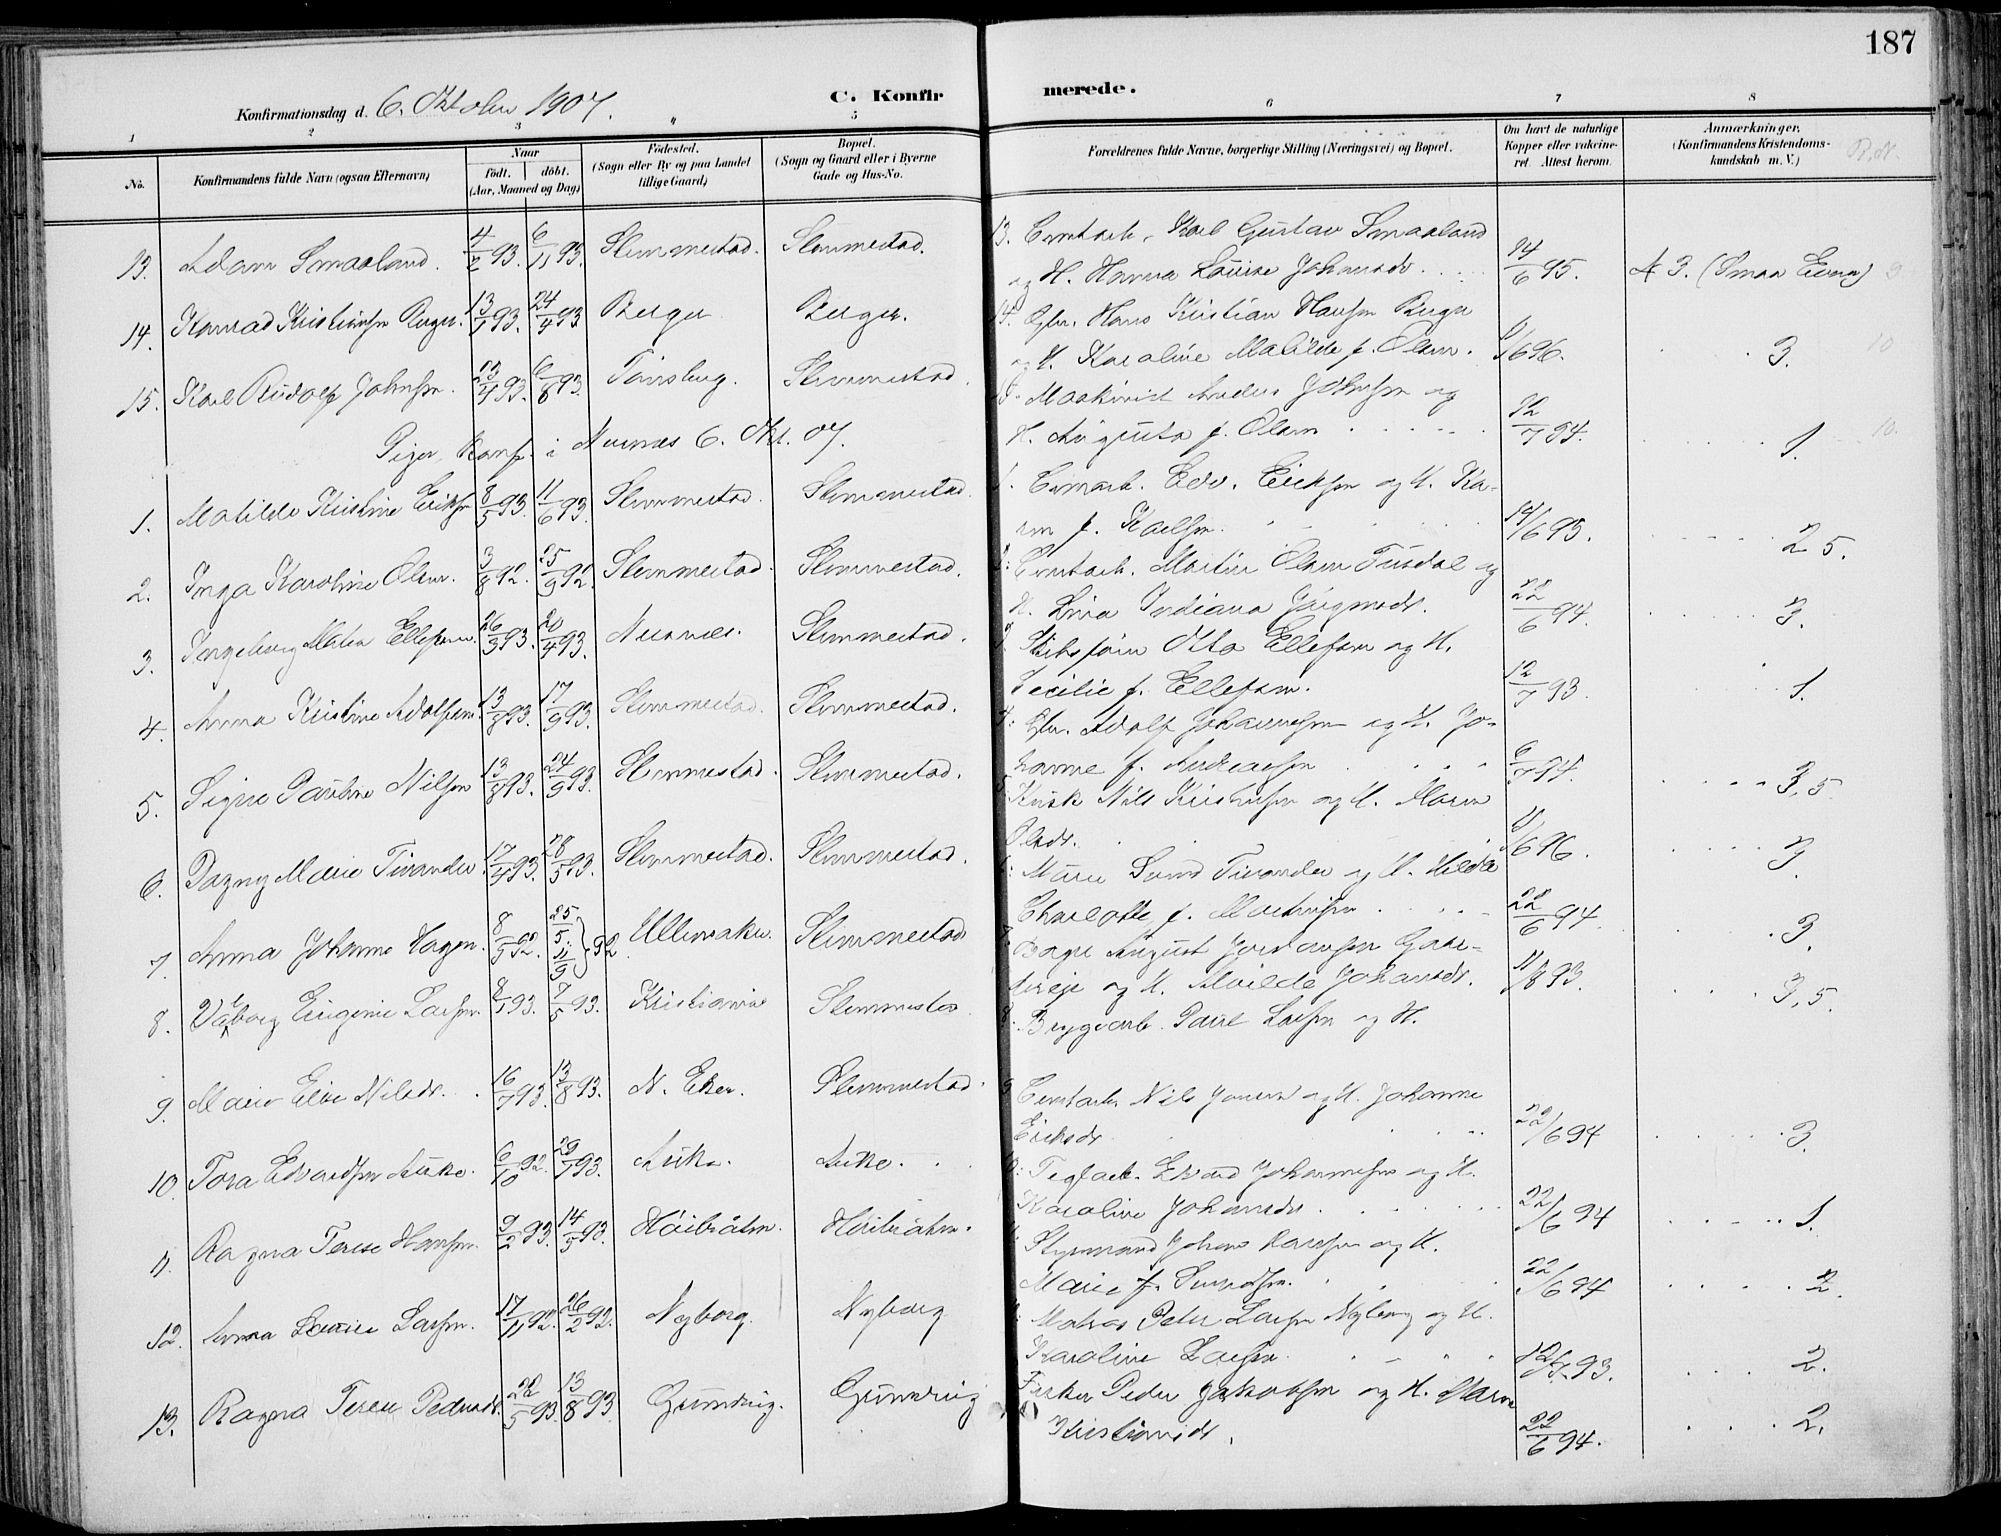 187
Konfirmationsdag d. 6. Oktober 1907.
C. Konfir
merede.
1 2 3 4 5 6 7 8
No.
Konfirmandens fulde Navn (ogsaa Efternavn)
Naar
født. døbt.
(Aar, Maaned og Dag)
Födested.
(Sogn eller By og paa Landet
tillige Gaard)
Bopæl.
(Sogn og Gaard eller i Byerne
Gade og Hus-No.
Forældrenes fulde Navne, borgerlige Stilling (Næringsvei) og Bopæl.
Om havt de naturlige
Kopper eller vakcine-
ret. Attest herom.
Anmærkninger.
(Konfirmandens Kristendoms-
kundskab m. V.)
13. Adam Smaaland. 4/2 93. 6/11 93. Slemmestad. Slemmestad.
13. Cemtarb. Karl Gustav Smaaland
og H. Hanna Lovise Johansdr. 14/6 95. 3. (Smaa Evner)
14. Konrad Kristiansen Berger. 13/1 93. 24/4 93 Berger Berger.
14. Hans Kristian Hansen Berger
og H. Karoline Matilde f. Olsen. 6 96. 3.
15. Karl Rudolf Johnsen. 23/4 93. 6/8 93. Tönsberg. Slemmestad.
Maskinist Anders Johnsen og
H. Augusta f. Olsen 12/7 94. 1. 10.
Piger, Konf. i Nærsnes 6. Okt. 07.
1. Matilde Kristine Eriksen 8/5 93. 11/6 93. Slemmestad. Slemmestad.
1. Cemarb. Edv. Eriksen og H. Ka-
ren f. Karlsen. 14/6 95. 2 5.
2. Inga Karoline Olsen. 3/8 92. 25/9 92. Slemmestad. Slemmestad.
Cemtarb. Martin Olsen Tusdal og
H. Lina Indiana Jörgensdr. 22/6 94. 3.
3. Ingeborg Ellefsen. 26/3 93. 20/4 93. Nærsnes. Slemmestad.
Otto Ellefsen og H.
Cecilie f. Ellefsen. 12/7 93. 1.
4. Anna Kristine Adolfsen. 13/8 93. 17/9 93. Slemmestad. Slemmestad.
4. Adolf Johannesen og H. Jo-
hanne f. Andreassen 6/7 94. 3,5
5. Signe Pauline Nilsen 13/8 93. 24/9 93. Slemmestad. Slemmestad.
5. Kusk Nils Kristensen og H. Maren
Olsdr. 6 96. 3.
6. Dagny Marie Tivander. 17/4 93. 28/5 93. Slemmestad. Slemmestad.
Murer Svend Tivander og H. Hilda
Charlotte f. Martinsen 22/6 94. 3.
7. Anna Johanne Hagen. 8/5 92. 25/5 11/9 92. Ullensaker. Slemmestad
August Jordansen Gaar-
dereje og H. Alvilde Johansdr. 11/8 93. 3,5.
8. Valborg Eugenie Larsen 8/1 93. 7/5 93. Kristiania Slemmestad
8. Bryggearb. Paul Larsen og H.
9. Marie Elise Nilsdr. 16/7 93. 13/8 93. N. Eker. Slemmestad.
9. Cemtarb. Nils Jensen og H. Johanne
Eriksdr. 22/6 94 3.
10. Tora Edvardsen Auke. 6/10 92. 29/1 93. Auke. Auke.
Teglarb. Edvard Johannesen og H.
Karoline Johansdr. 22/6 94 1.
11. Ragna Terese Hansen. 9/2 93. 14/5 93. Höibråten. Höibråten.
Styrmand Johan Hansen og H.
Marie f. 22/6 94 2.
12. Anna Lovise Larsen. 17/11 92. 26/2 92. Nyborg. Nyborg
Matros Peder Larsen Nyborg og H.
Karoline Larsen. 12/7 93. 2.
13. Ragna Terese Pedersdr. 22/5 93 13/8 93. Grundvig. Grundvig
Fisker Peder Jakobsen og H. Maren
Kristiansdr. 22/6 94. 2.